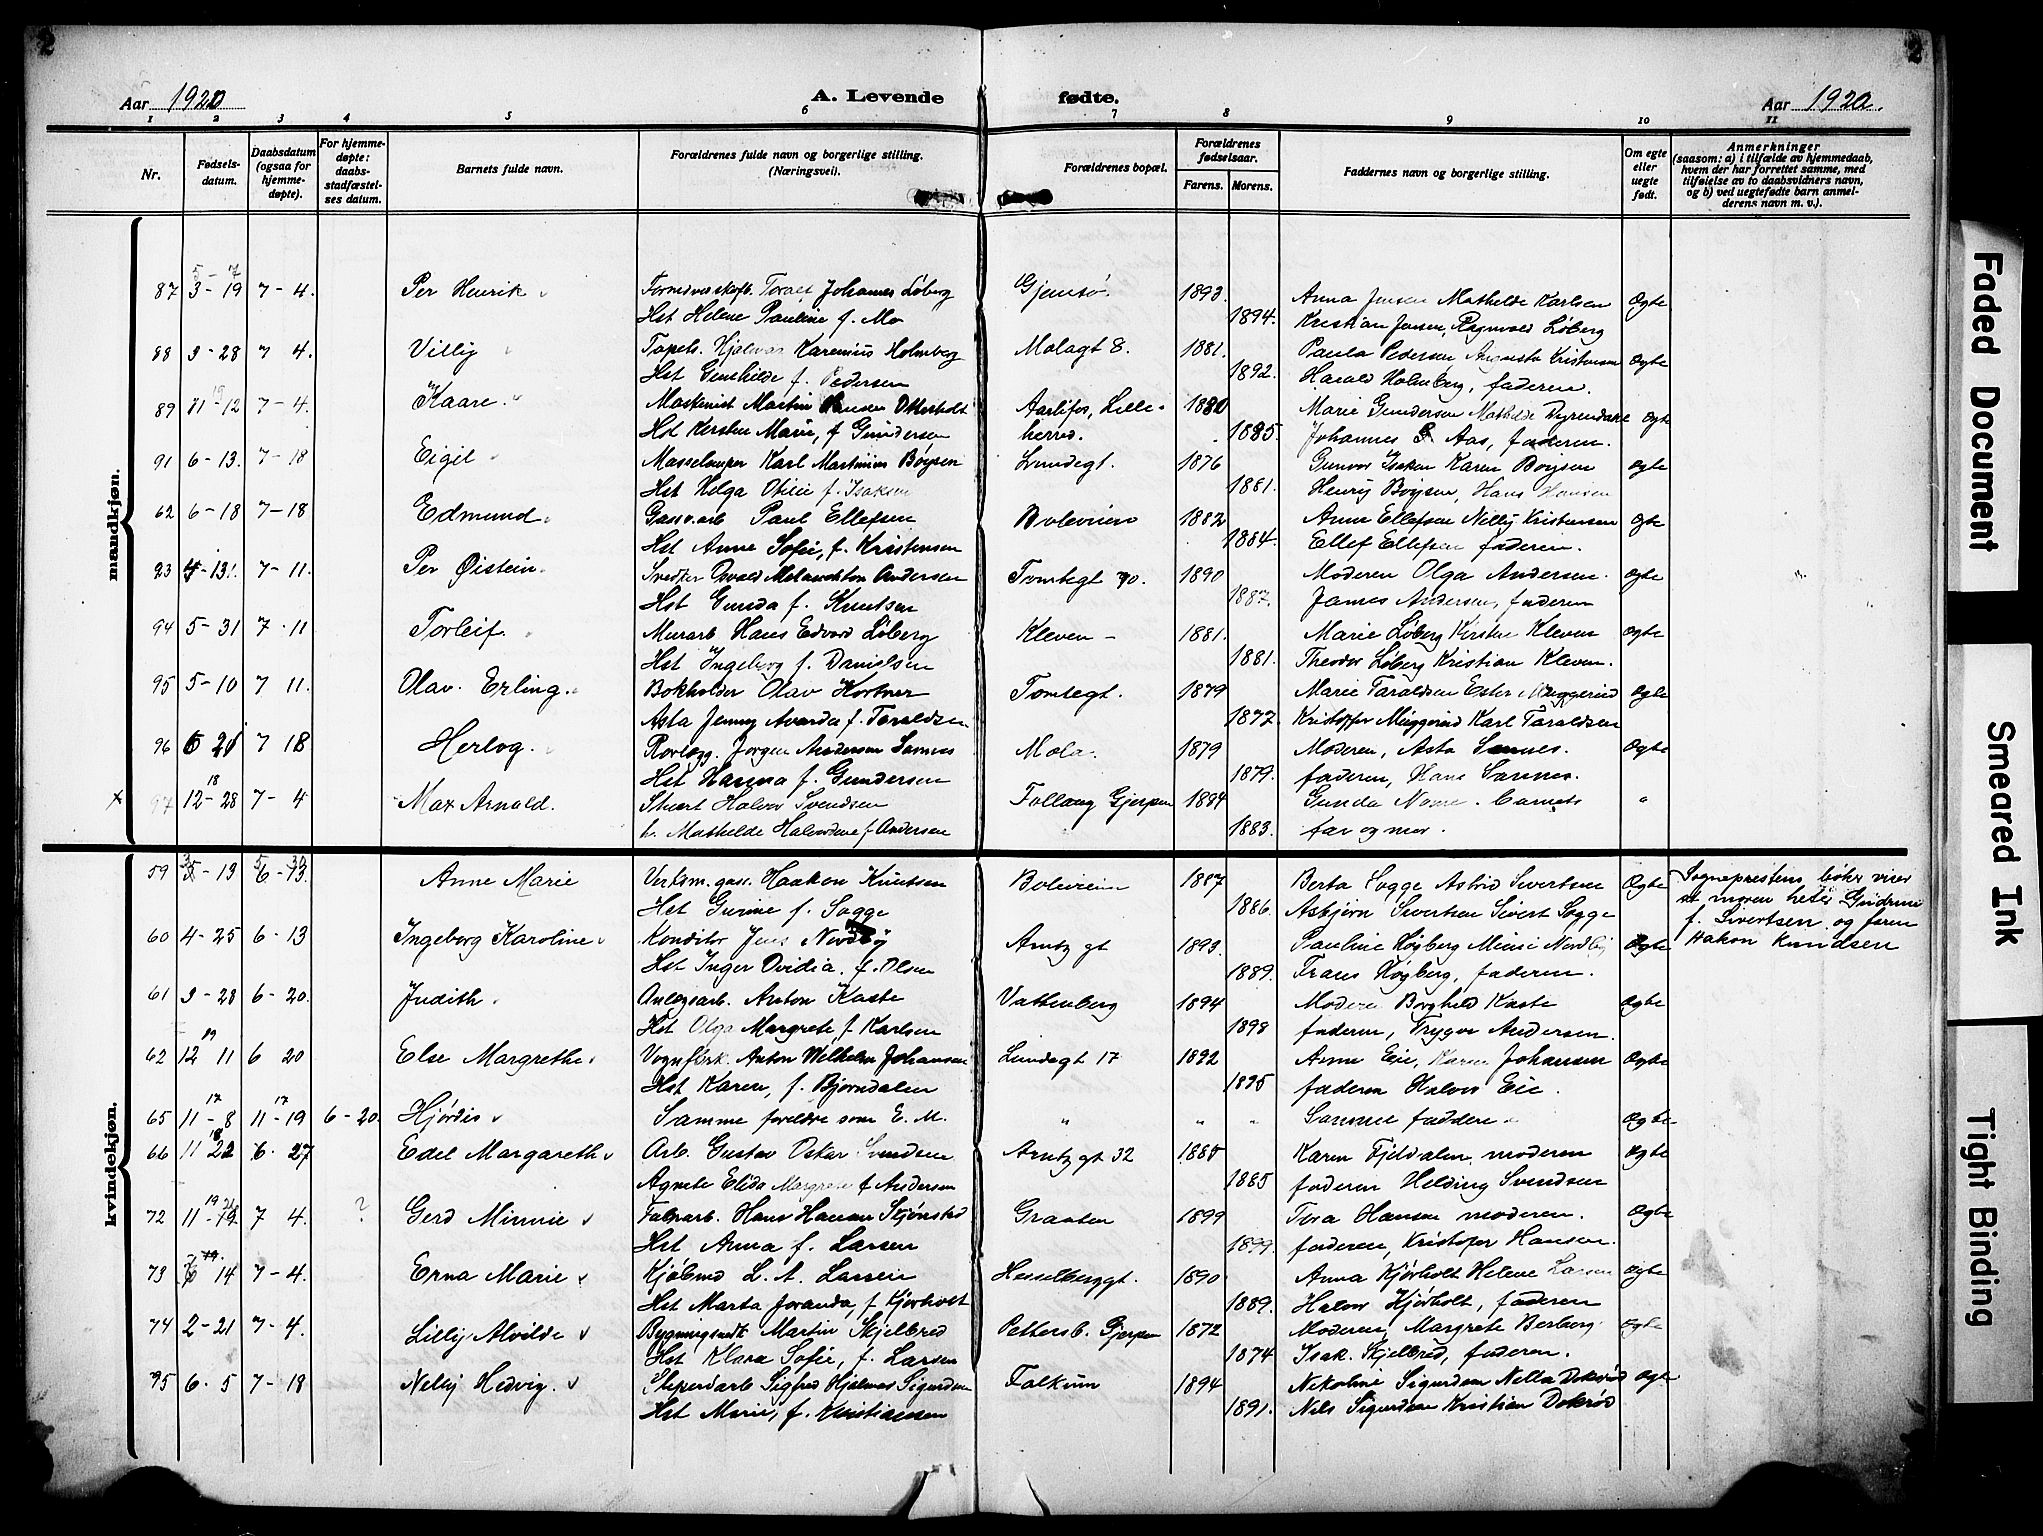 2
2
Aar 1920
A. Levende
fødte.
Aar 1920.
1 2 3 4 5 6 7 8 9 10 11
Nr.
Fødsels-
datum.
Daabsdatum
(ogsaa for
hjemme-
døpte).
For hjemme-
døpte:
daabs-
stadfæstel-
ses datum.
Barnets fulde navn.
Forældrenes fulde navn og borgerlige stilling.
(Næringsvei).
Forældrenes bopæl.
Forældrenes
fødselsaar.
Farens. Morens.
Faddernes navn og borgerlige stilling.
Om egte
eller
uegte
født.
Anmerkninger
(saasom: a) i tilfælde av hjemmedaab,
hvem der har forrettet samme, med
tilføielse av to daabsvidners navn,
og b) ved uegtefødte barn anmel-
derens navn m. v.).
mandkjøn.
5 - 7
87 3-19 7-4. Per Henrik Johannes Løberg Gjemsø. 1893. Anna Jensen Mathilde Karlsen Ogte
Hst Helene Pauline f. Mo 1894. Kristian Jensen, Ragnvald Løberg
88 3-28 7 4. Villy Tapets. Hjalmar Karenius Holmberg Molagt 8. 1881. Paula Pedersen Augusta Kristensen Ogte
Hst Gunhilde f. Pedersen 1892. Harald Holmberg, faderen.
89 11-12 7-4. Kaare Maskinist Martin Otterholt Aarlifos, Lille- 1880 Marie Gundersen Mathilde Ogte
Hst Kirsten Marie, f Gundersen herred. 1885. Johannes Aas, faderen.
91 6-13. 7-18 Eigil Karl Martinius Bøysen Lundegt. 1876 Gunvor Isaksen Karen Boysen Ogte
Hst Helga Otilie f. Isaksen 1881. Henry Boysen, Hans Hansen
62 6-18 7-18 Edmund Gassv.arb Paul Ellefsen Boleveien 1882 Anne Ellefsen Nelly Kristensen Ogte
Hst Anne Sofie, f. Kristensen 1884. Ellef Ellefsen faderen.
93 4-13. 7-11. Per Øistein. Osvald Melanchton Andersen Tomtegt 1890 Moderen Olga Andersen. Ogte
Hst Gunda f. Knutsen 1887. James Andersen, faderen
94 5-31 7-11 Torleif. Murarb Hans Edvard Løberg Kleven - 1881. Marie Løberg Kirsten Kleven Ogte
Hst Ingeborg f. Danielsen 1881. Theodor Løberg Kristian Kleven.
95 5-10 7 11. Olav Erling. Bokholder Olav Kortner Tomtegt. 1879 Marie Taraldsen Ester Muggerud Ogte
Asta Jenny Amanda f. Taraldsen 1872. Kristoffer Muggerud Karl Taraldsen
96 7 18 Herlog. Rorlægg. Jørgen Andersen Sannes Mola. 1879 Moderen, Asta Sannes. Ogte
Hst Hanna f. Gundersen 1879. faderen, Hans Sannes.
18
x 97 12-28 7-4 Max Arnold. Stuert Halvor Svendsen Follaug Gjerpen 1884 Gunda Barnets "
h. Mathilde f Andersen 1883. far og mor.
kvindekjøn.
59 5-13 6-13. Anne Marie Verksm. gass. Haakon Knutsen Boleveien 1887 Berta Sogge Astrid Sivertsen Ogte Sogneprestens bøker viser
Hst Gurine f. Sogge 1886. Asbjørn Sivertsen Sivert Sogge at moren heter Gudrun
f. Sivertsen og faren
60 4-25 6-13 Ingeborg Karoline Konditor Jens Nordby Arntz gt 1893. Pauline Høgberg Minsi Nordby Ogte Hakon Knudsen
Hst Inger Ovidia. f. Olsen 1889. Frans Høgberg, faderen.
61 3-28 6-20. Judith Anlægsarb. Anton Kaste Vattenberg 1894 Moderen Borghild Kaste Ogte
Hst Olga Margrete f. Karlsen 1898 faderen, Trygve Andersen.
19
62 12 11 6 20 Else Margrethe Vognfork. Anton Wilhelm Johansen Lundegt 17 1892 Anne Eie, Karen Johansen Ogte
Hst Karen, f. Bjørndalen 1895 faderen Halvor Eie.
17 17
65 11-8 11-19 6-20. Hjørdis Samme foreldre som E. M. " " " Samme faddere Ogte
18
66 11 22 6-27 Edel Margareth Arb. Gustav Oskar Svendsen Arntz gt 32 1885 Karen Fjeldalen, moderen Ogte
Agnete Elida Margrete f Andersen 1885 faderen Helding Svendsen
19
72 11-19 7 4. ? Gerd Minnie Fabrarb. Hans Hansen Skjønstad Graaten 1899 Tora Hansen moderen. Ogte
Hst Anna f. Larsen 1899. faderen, Kristofer Hansen.
73 6 14 7-4. Erna Marie Kjøbmd L. A. Larsen Hesselberggt. 1890 Anna Kjørholt Helene Larsen Ogte
Hst Marta Joranda, f Kjørholt 1889. Halvor Kjørholt, faderen
74 2-21 7-4. Lilly Alvilde Bygningssnedk Martin Skjelbred Pettersb. Gjerpen 1872 Moderen, Margrete Berberg. Ogte
Hst Klara Sofie, f. Larsen 1874 Isak. Skjelbred, faderen.
75 6-5 7-18 Nelly Hedvig. Sigfred Hjalmar Sigurdsen Falkum 1894 Nikoline Sigurdsen Nella Dokrød Ogte
Hst Marie, f. Kristiansen 1891. Nils Sigurdsen Kristian Dokrød
Faded Document
Smeared Ink
Tight Binding